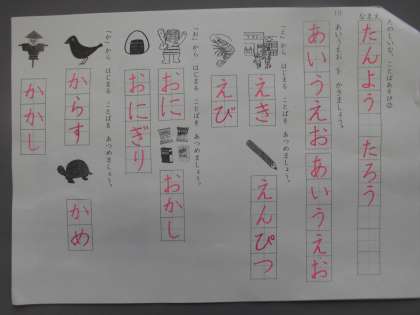 たのしいな、ことばあそび②
なまえ
たんよう たろう
(1) あいうえお を かきましょう。
あいうえおあいうえお
「え」から はじまる ことばを あつめましょう。
えき
えんぴつ
えび
「お」から はじまる ことばを あつめましょう。
おに
おかし
おにぎり
「か」から はじまる ことばを あつめましょう。
からす
かめ
かかし